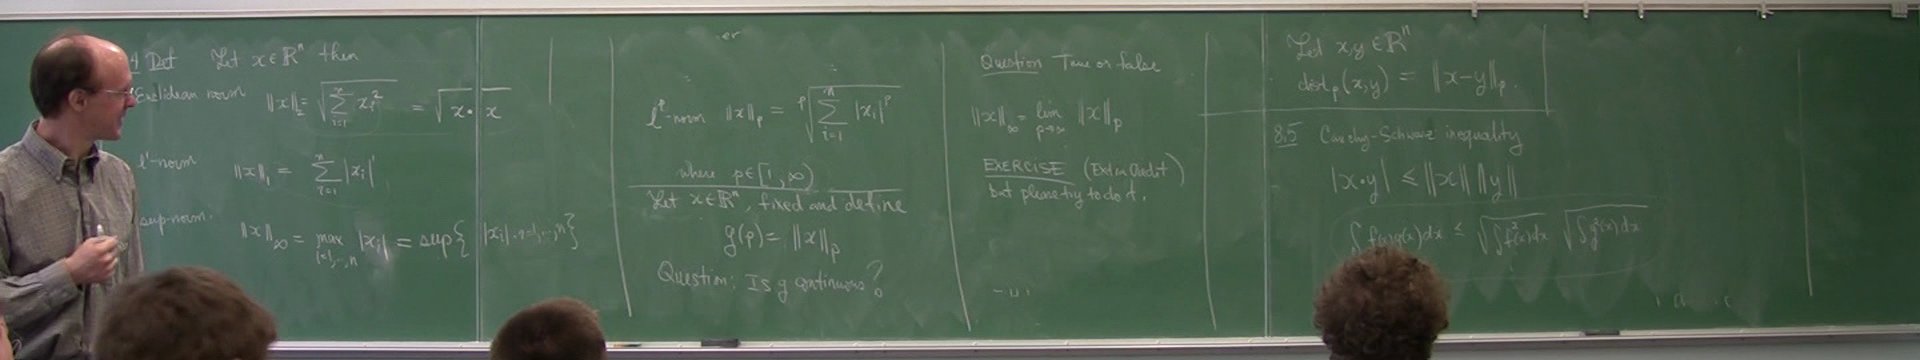 4 Def Let x ∈ ℝⁿ then
Euclidean norm ‖x‖₂ = √(∑_{i=1}^{n} xᵢ²) = √(x·x)
ℓ¹-norm ‖x‖₁ = ∑_{i=1}^{n} |xᵢ|
sup-norm. ‖x‖_∞ = max_{i=1,...,n} |xᵢ| = sup{|xᵢ| : i=1,...,n}
er
ℓᵖ-norm ‖x‖_p = ᵖ√(∑_{i=1}^{n} |xᵢ|ᵖ)
where p ∈ [1, ∞)
Let x ∈ ℝⁿ, fixed and define
g(p) = ‖x‖_p
Question: Is g continuous?
Question True or false
‖x‖_∞ = lim_{p→∞} ‖x‖_p
EXERCISE (Extra Credit)
but please try to do it.
Let x,y ∈ ℝⁿ
dist_p(x,y) = ‖x−y‖_p.
8.5 Cauchy-Schwarz inequality
|x·y| ≤ ‖x‖ ‖y‖
∫ f(x)g(x)dx ≤ √(∫f²(x)dx) √(∫g²(x)dx)